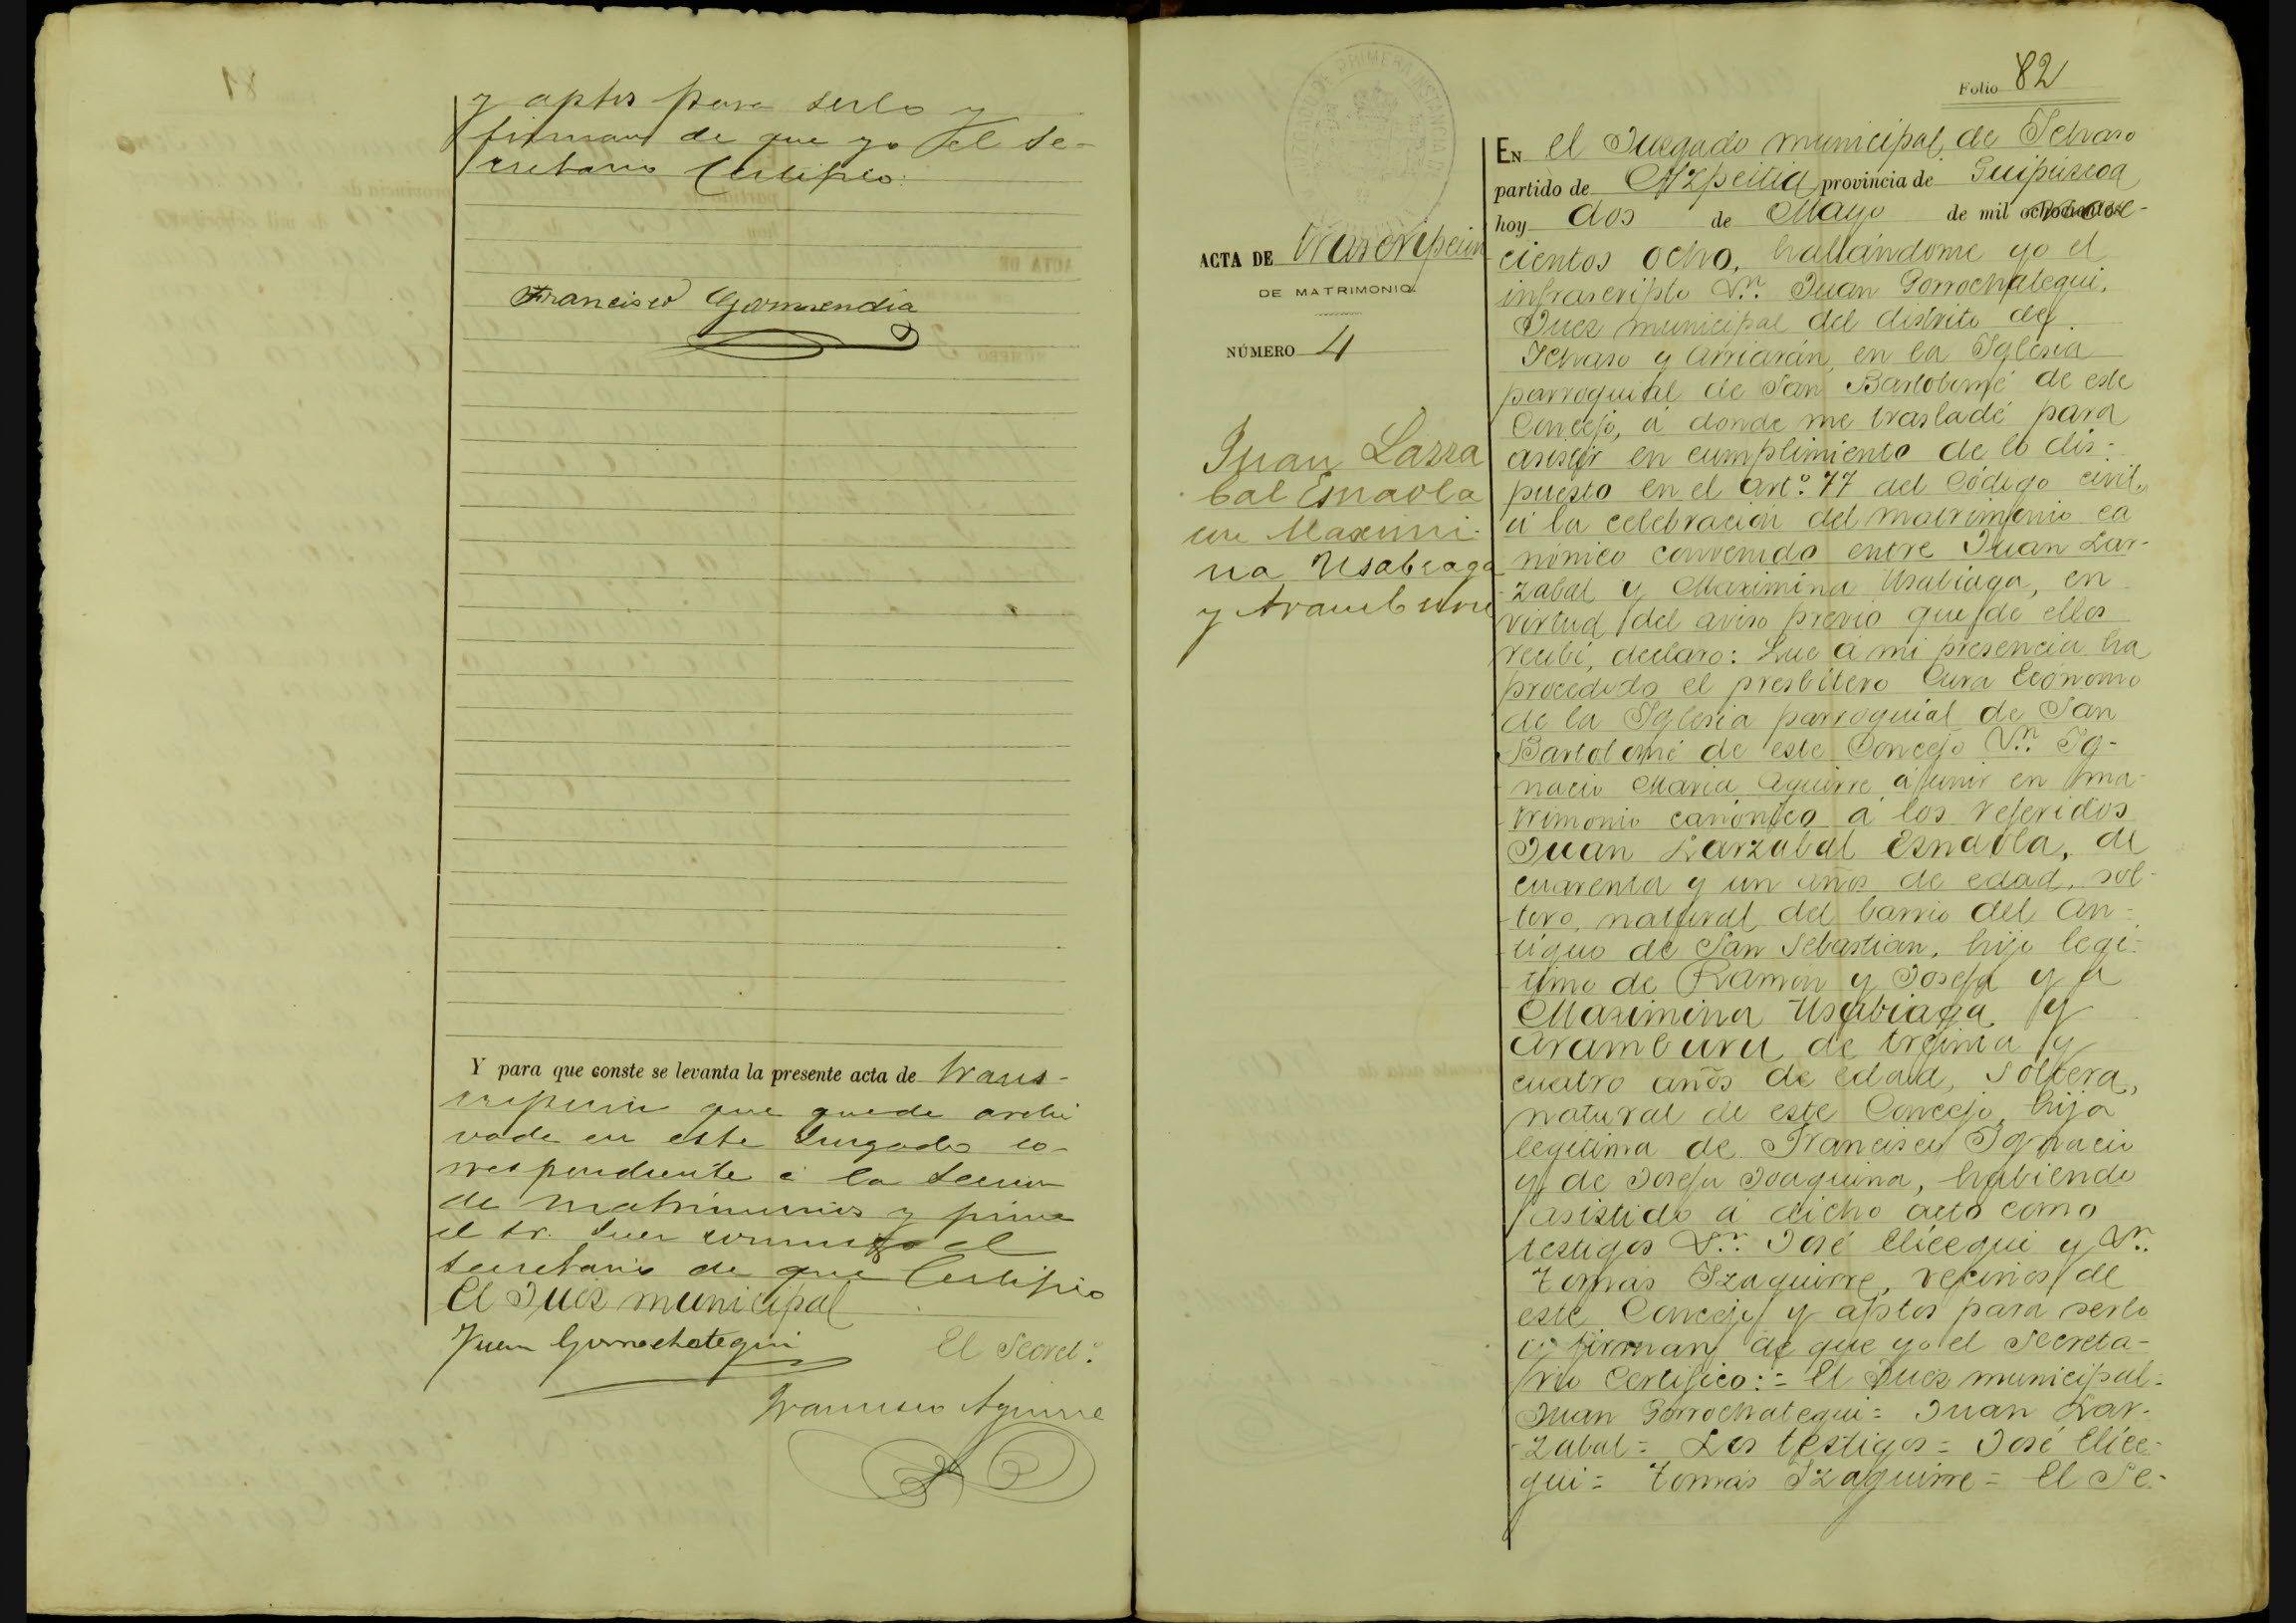 y aptos para serlo y
firman de que yo el Se-
cretario Certifico:
Francisco Garmendia
Y para que conste se levanta la presente acta de trans-
cripcion que queda archi
vada en este Juzgado co-
rrespondiente á la Seccion
de matrimonios y firma
el Sr. Juez conmigo el
Secretario de que Certifico
El Juez municipal
Juan Gorrochategui
El Secret.º
Francisco Aguirre
Folio 82
ACTA DE trascripcion
DE MATRIMONIO.
NÚMERO 4
Juan Larza
bal Esnaola
con Maximi-
na Usabiaga
y Aramburu
EN el Juzgado municipal de Ichaso
partido de Azpeitia provincia de Guipúzcoa
hoy dos de Mayo de mil nove-
cientos ocho, hallándome yo el
infrascripto Dn. Juan Gorrochategui,
Juez municipal del distrito de
Ichaso y Arriarán, en la Iglesia
parroquial de San Bartolomé de este
Concejo, á donde me trasladé para
asistir en cumplimiento de lo dis-
puesto en el artº. 77 del Código civil,
á la celebración del matrimonio ca
nónico convenido entre Juan Lar-
zabal y Maximina Usabiaga, en
virtud del aviso previo que de ellos
recibí, declaro: Que á mi presencia ha
procedido el presbítero Cura Ecónomo
de la Iglesia parroquial de San
Bartolomé de este Concejo Dn. Ig-
nacio María Aguirre á unir en ma-
trimonio canónico á los referidos
Juan Larzabal Esnaola, de
cuarenta y un años de edad, sol-
tero, natural del barrio del An-
tiguo de San Sebastian, hijo legí-
timo de Ramón y Josefa y a
Maximina Usabiaga y
Aramburu de treinta y
cuatro años de edad, soltera,
natural de este Concejo, hija
legítima de Francisco Ignacio
y de Josefa Joaquina, habiendo
asistido á dicho acto como
testigos Dn. José Elícegui y Dn.
Tomás Izaguirre, vecinos de
este Concejo y aptos para serlo
y firman de que yo el Secreta-
rio Certifico:= El Juez municipal=
Juan Gorrochategui= Juan Lar-
zabal= Los testigos= José Elíce-
gui= Tomás Izaguirre= El Se-